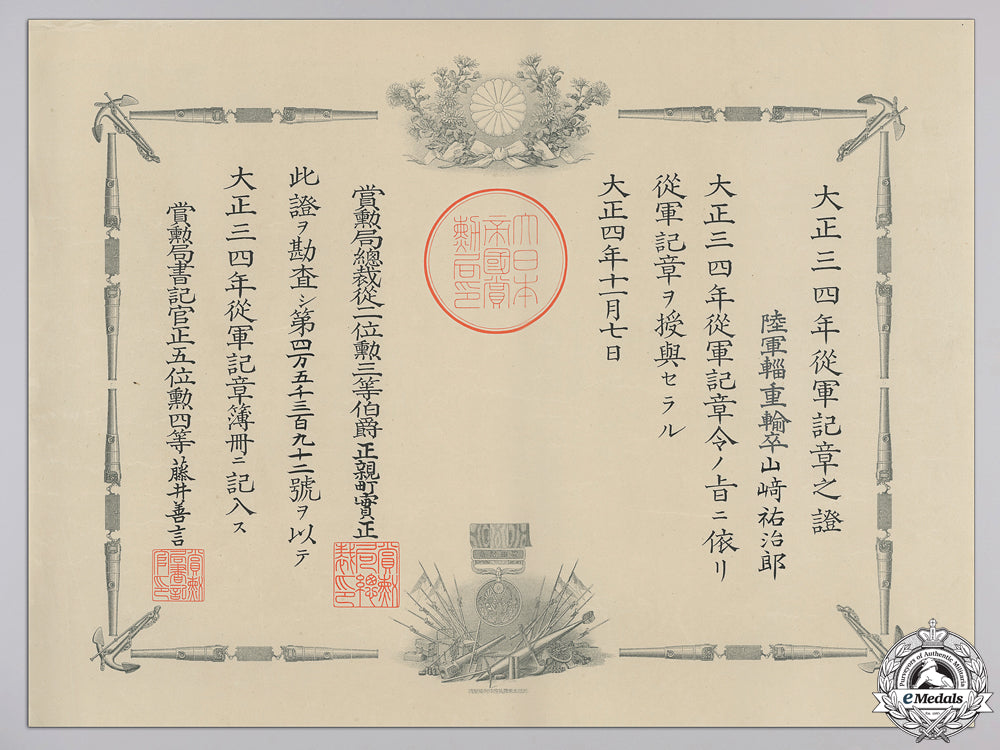 大正三四年從軍記章之證
陸軍輜重輸卒山﨑祐治郎
大正三四年從軍記章令ノ旨ニ依リ
從軍記章ヲ授與セラル
大正四年十一月七日
大日本
帝國賞
勳局印
賞勳局總裁從二位勳三等伯爵正親町實正
賞勳
局總
裁印
此證ヲ勘査シ第四万五千三百九十二號ヲ以テ
大正三四年從軍記章簿冊ニ記入ス
賞勳局書記官正五位勳四等藤井善言
賞勳
局書記
官印
Purveyors of Authentic Militaria
eMedals